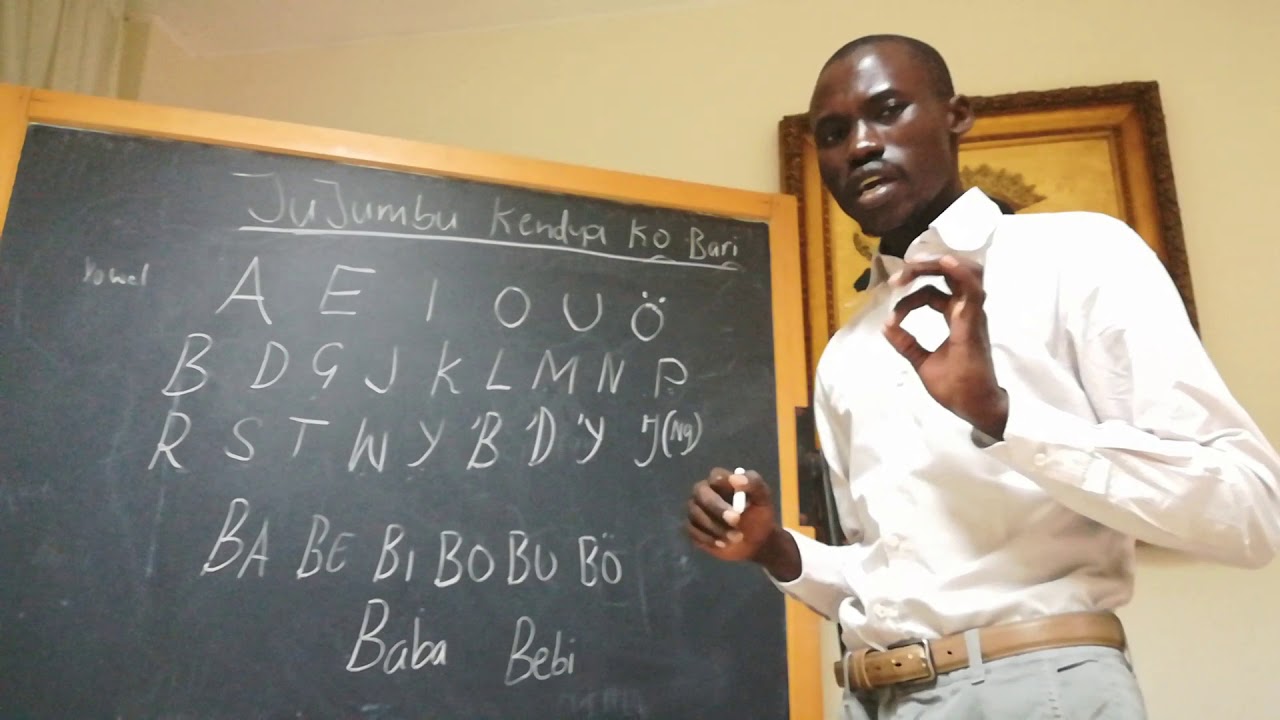 JuJumbu Kendya Ko Bari
Vowel A E I O U Ö
B D G J K L M N P
R S T W Y 'B 'D 'Y Ŋ (Ng)
BA BE Bi BO BU BÖ
Baba Bebi